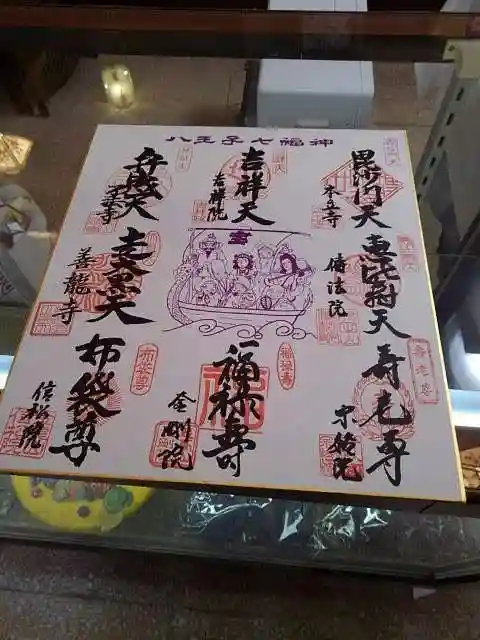 八王子七福神
毘沙門天
本立寺
恵比寿天
傳法院
寿老尊
宗格院
寿老尊
吉祥天
吉祥院
宝
福禄寿
福禄壽
金剛院
弁財天
了法寺
走大黒天
善龍寺
布袋尊
布袋尊
信松院